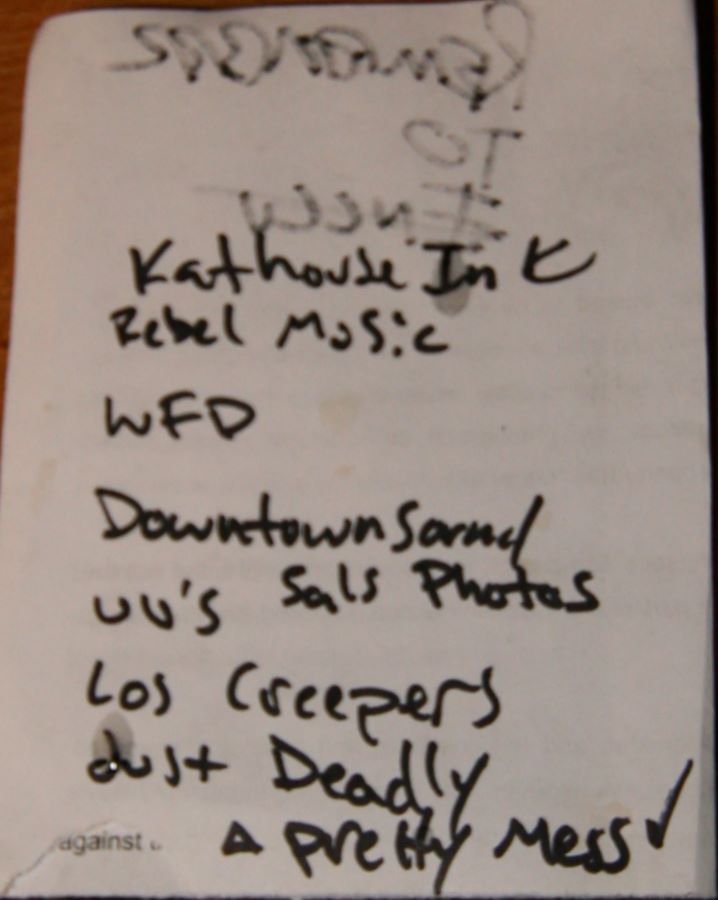 REMEMBER
TO
ENJOY
Kathouse Ink
Rebel Music
WFD
Downtown Sound
UU'S Sals Photos
Los Creepers
dust Deadly
A Pretty Mess ✓
against